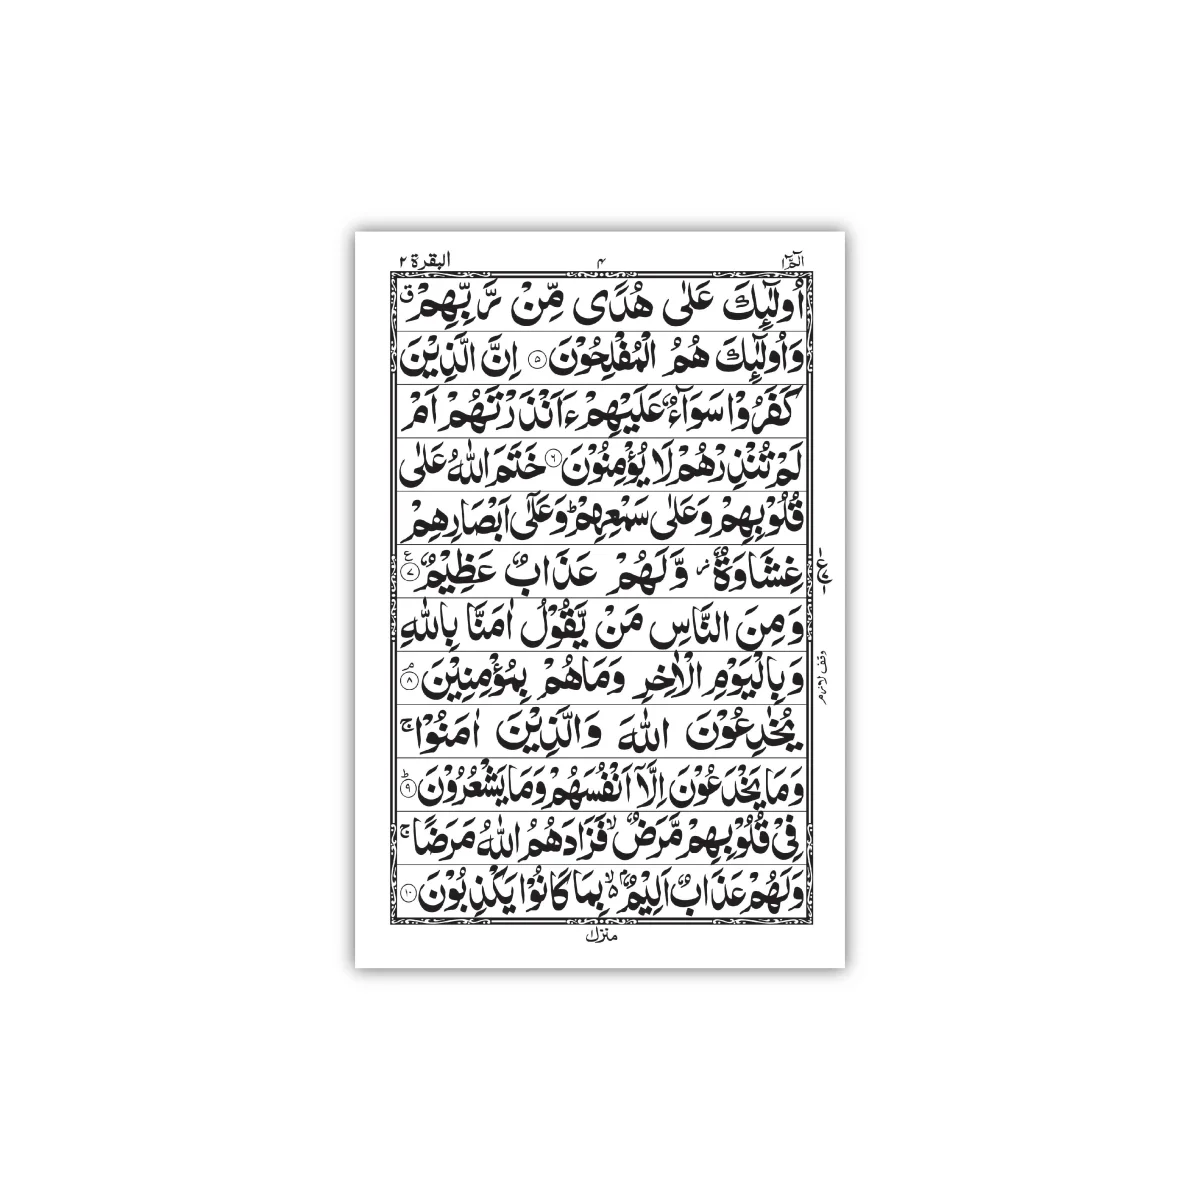 البقرة ٢ ۴ الٓمّٓ ١
اُولٰٓئِكَ عَلٰى هُدًى مِّنْ رَّبِّهِمْ ۗ ق
وَاُولٰٓئِكَ هُمُ الْمُفْلِحُوْنَ ۝٥ اِنَّ الَّذِيْنَ
كَفَرُوْا سَوَآءٌ عَلَيْهِمْ ءَاَنْذَرْتَهُمْ اَمْ
لَمْ تُنْذِرْهُمْ لَا يُؤْمِنُوْنَ ۝٦ خَتَمَ اللّٰهُ عَلٰى
قُلُوْبِهِمْ وَعَلٰى سَمْعِهِمْ ؕ وَعَلٰٓى اَبْصَارِهِمْ
غِشَاوَةٌ ز وَّلَهُمْ عَذَابٌ عَظِيْمٌ ۝٧ ع
وَمِنَ النَّاسِ مَنْ يَّقُوْلُ اٰمَنَّا بِاللّٰهِ
وَبِالْيَوْمِ الْاٰخِرِ وَمَا هُمْ بِمُؤْمِنِيْنَ ۝٨ م
وقف لازم
يُخٰدِعُوْنَ اللّٰهَ وَالَّذِيْنَ اٰمَنُوْا ج
وَمَا يَخْدَعُوْنَ اِلَّآ اَنْفُسَهُمْ وَمَا يَشْعُرُوْنَ ۝٩ ط
فِيْ قُلُوْبِهِمْ مَّرَضٌ لا فَزَادَهُمُ اللّٰهُ مَرَضًا ج
وَلَهُمْ عَذَابٌ اَلِيْمٌ ۢ ۙ بِمَا كَانُوْا يَكْذِبُوْنَ ۝١٠
منزل